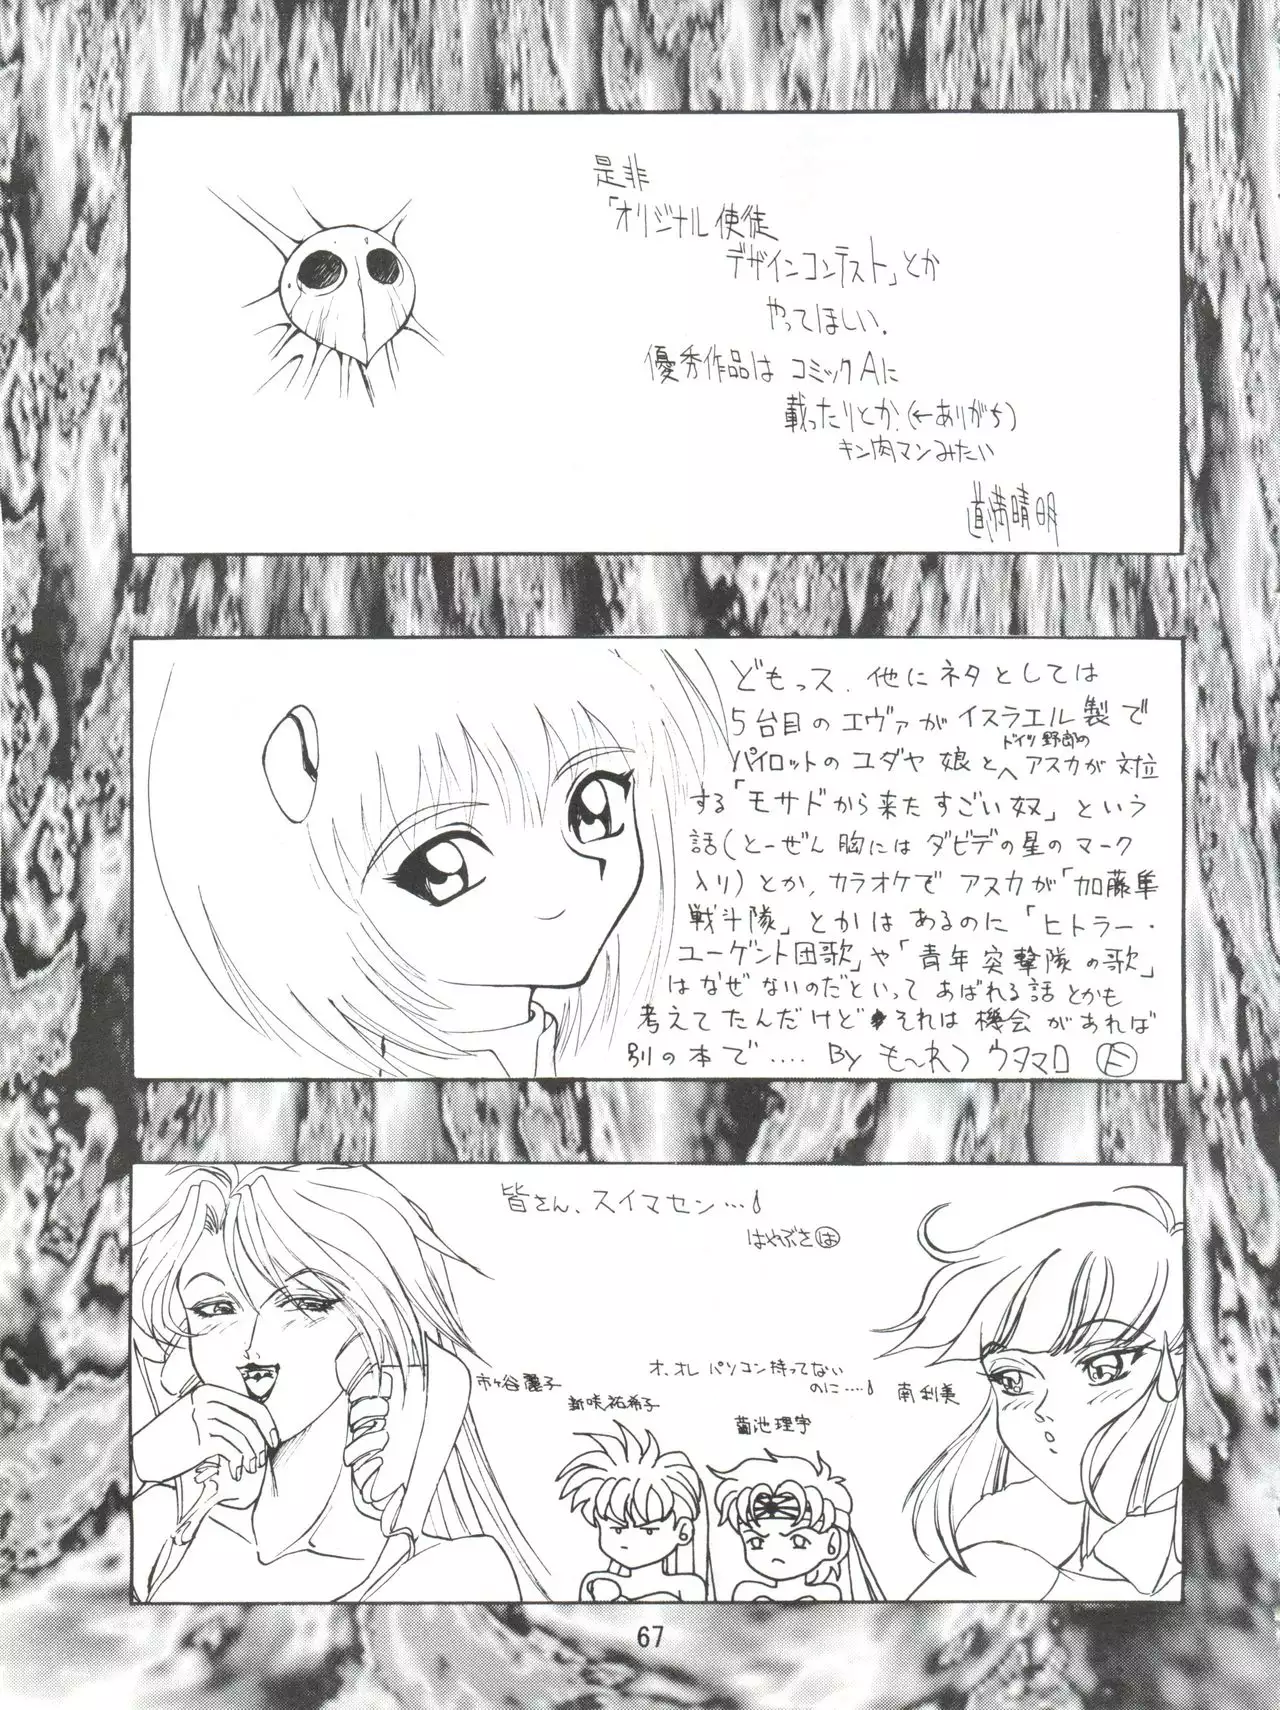 是非
「オリジナル使徒
デザインコンテスト」とか
やってほしい.
優秀作品は コミックAに
載ったりとか.(←ありがち)
キン肉マンみたい
道満晴明
どもっス. 他にネタとしては
5台目のエヴァがイスラエル製で
ドイツ野郎の
パイロットのユダヤ娘とアスカが対立
する「モサドから来たすごい奴」という
話(とーぜん胸にはダビデの星のマーク
入り)とか,カラオケでアスカが「加藤隼
戦斗隊」とかはあるのに「ヒトラー・
ユーゲント団歌」や「青年突撃隊の歌」
はなぜないのだといってあばれる話とかも
考えてたんだけど それは機会があれば
別の本で.... By も〜れつウタマロ
皆さん、スイマセン…
はやぶさ は
市ヶ谷麗子
オ、オレ パソコン持ってない
のに….
新咲祐希子
菊池理宇
南利美
67